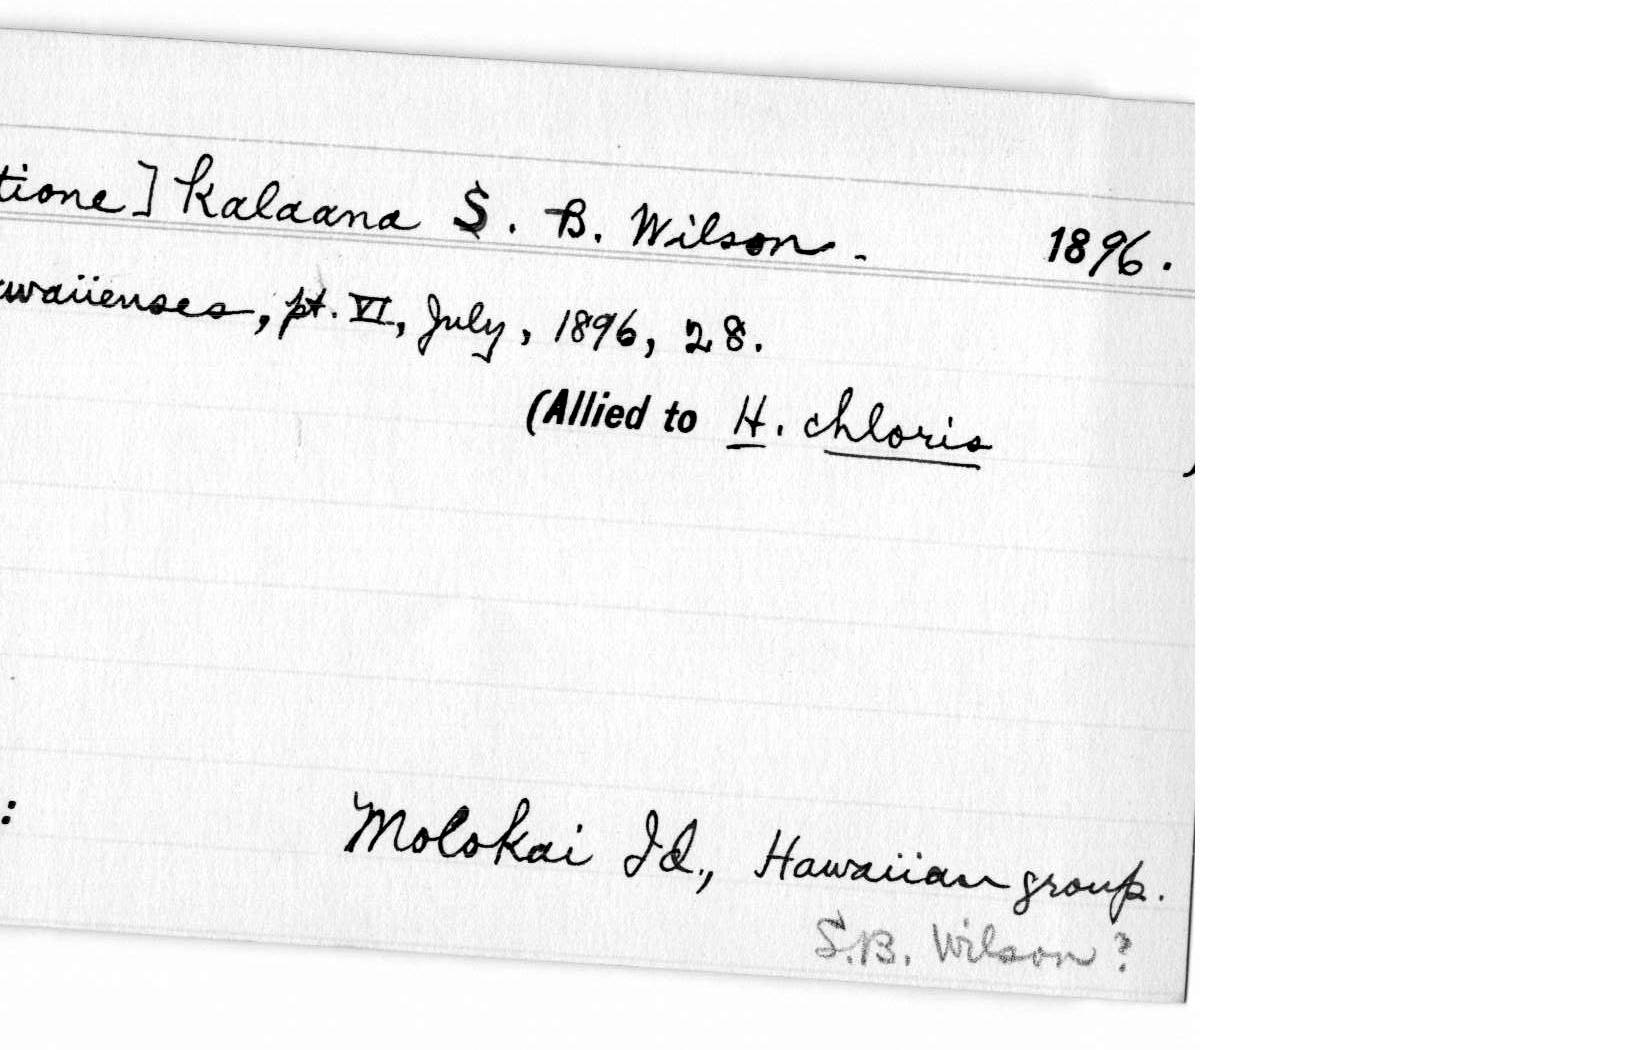 tione] kalaana S. B. Wilson. 1896.
waiienses, pt. VI, July, 1896, 28.
(Allied to H. chloris )
: Molokai Id., Hawaiian group.
S.B. Wilson?